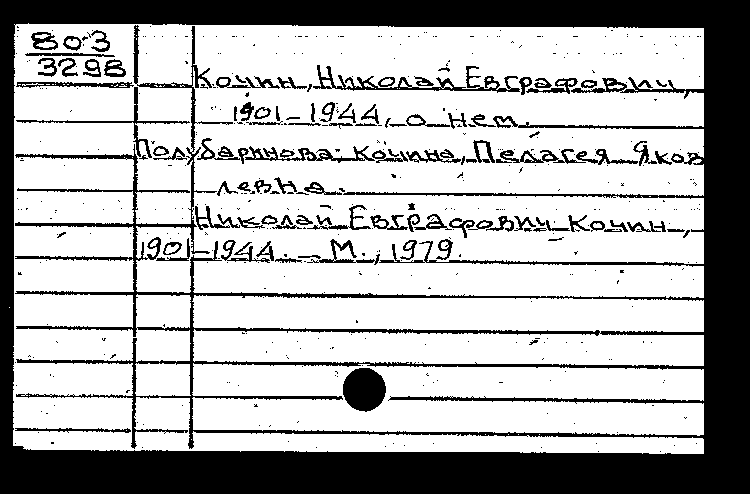 803
3298
Кочин, Николай Евграфович,
1901-1944, о нем.
Полубаринова-Кочина, Пелагея Яков
левна.
Николай Евграфович Кочин,
1901-1944. – М., 1979.